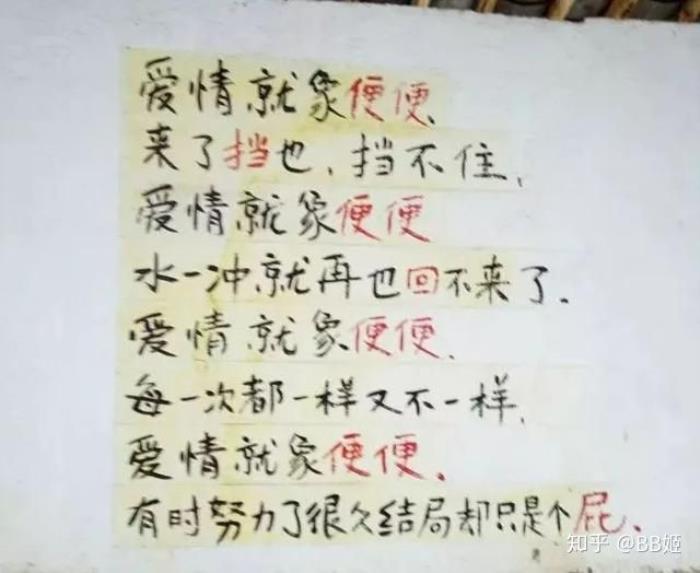 爱情就象便便、
来了挡也、挡不住、
爱情就象便便
水一冲就再也回不来了、
爱情就象便便、
每一次都一样又不一样、
爱情就象便便、
有时努力了很久结局却只是个屁、
知乎 @BB姬